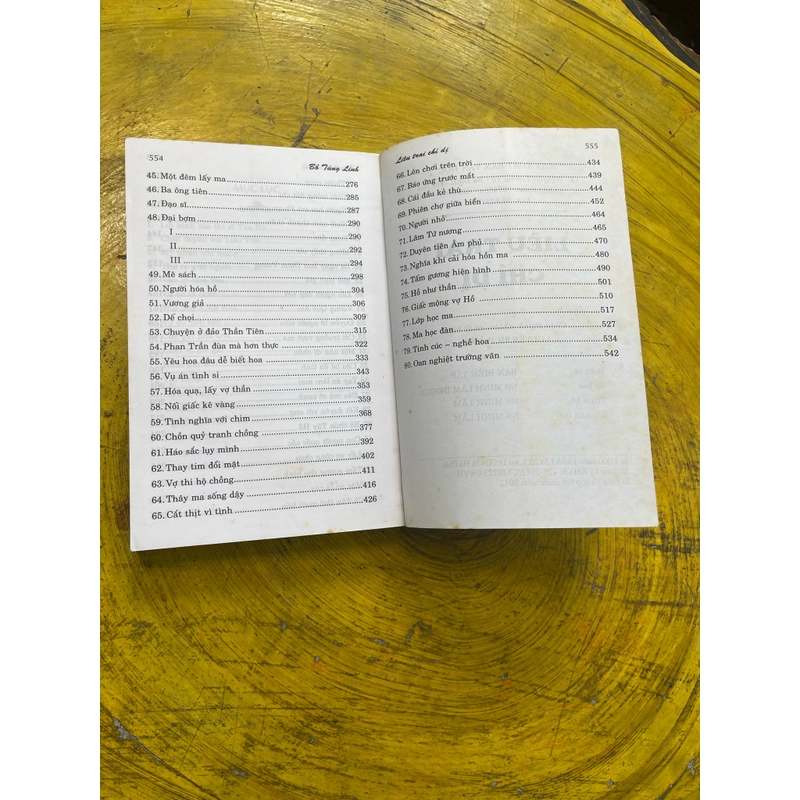 554
Bồ Tùng Linh
45. Một đêm lấy ma ........ 276
46. Ba ông tiên ........ 285
47. Đạo sĩ ........ 287
48. Đại bợm ........ 290
I ........ 290
II ........ 292
III ........ 294
49. Mê sách ........ 298
50. Người hóa hổ ........ 304
51. Vương giả ........ 306
52. Dế chọi ........ 309
53. Chuyện ở đảo Thần Tiên ........ 315
54. Phan Trần đùa mà hơn thực ........ 322
55. Yêu hoa đâu dễ biết hoa ........ 333
56. Vụ án tình si ........ 343
57. Hóa quạ, lấy vợ thần ........ 353
58. Nối giấc kê vàng ........ 359
59. Tình nghĩa với chim ........ 368
60. Chồn quỷ tranh chồng ........ 377
61. Háo sắc lụy mình ........ 392
62. Thay tim đổi mặt ........ 402
63. Vợ thi hộ chồng ........ 411
64. Thây ma sống dậy ........ 416
65. Cắt thịt vì tình ........ 426
Liêu trai chí dị
555
66. Lên chơi trên trời ........ 434
67. Báo ứng trước mắt ........ 439
68. Cái đầu kẻ thù ........ 444
69. Phiên chợ giữa biển ........ 452
70. Người nhỏ ........ 464
71. Lâm Tứ nương ........ 465
72. Duyên tiên Âm phủ ........ 470
73. Nghĩa khí cải hóa hồn ma ........ 480
74. Tấm gương hiện hình ........ 490
75. Hồ như thần ........ 501
76. Giấc mộng vợ Hồ ........ 510
77. Lớp học ma ........ 517
78. Ma học đàn ........ 527
79. Tinh cúc – nghề hoa ........ 534
80. Oan nghiệt trường văn ........ 542